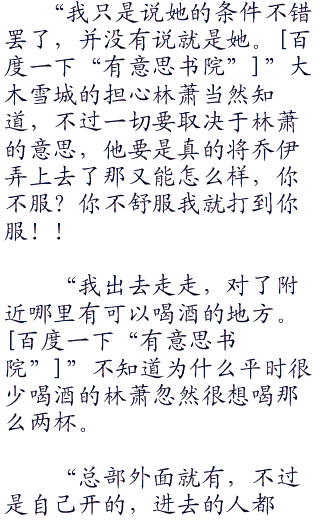 “我只是说她的条件不错
罢了，并没有说就是她。[百
度一下“有意思书院”]”大
木雪城的担心林萧当然知
道，不过一切要取决于林萧
的意思，他要是真的将乔伊
弄上去了那又能怎么样，你
不服？你不舒服我就打到你
服！！
“我出去走走，对了附
近哪里有可以喝酒的地方。
[百度一下“有意思书
院”]”不知道为什么平时很
少喝酒的林萧忽然很想喝那
么两杯。
“总部外面就有，不过
是自己开的，进去的人都